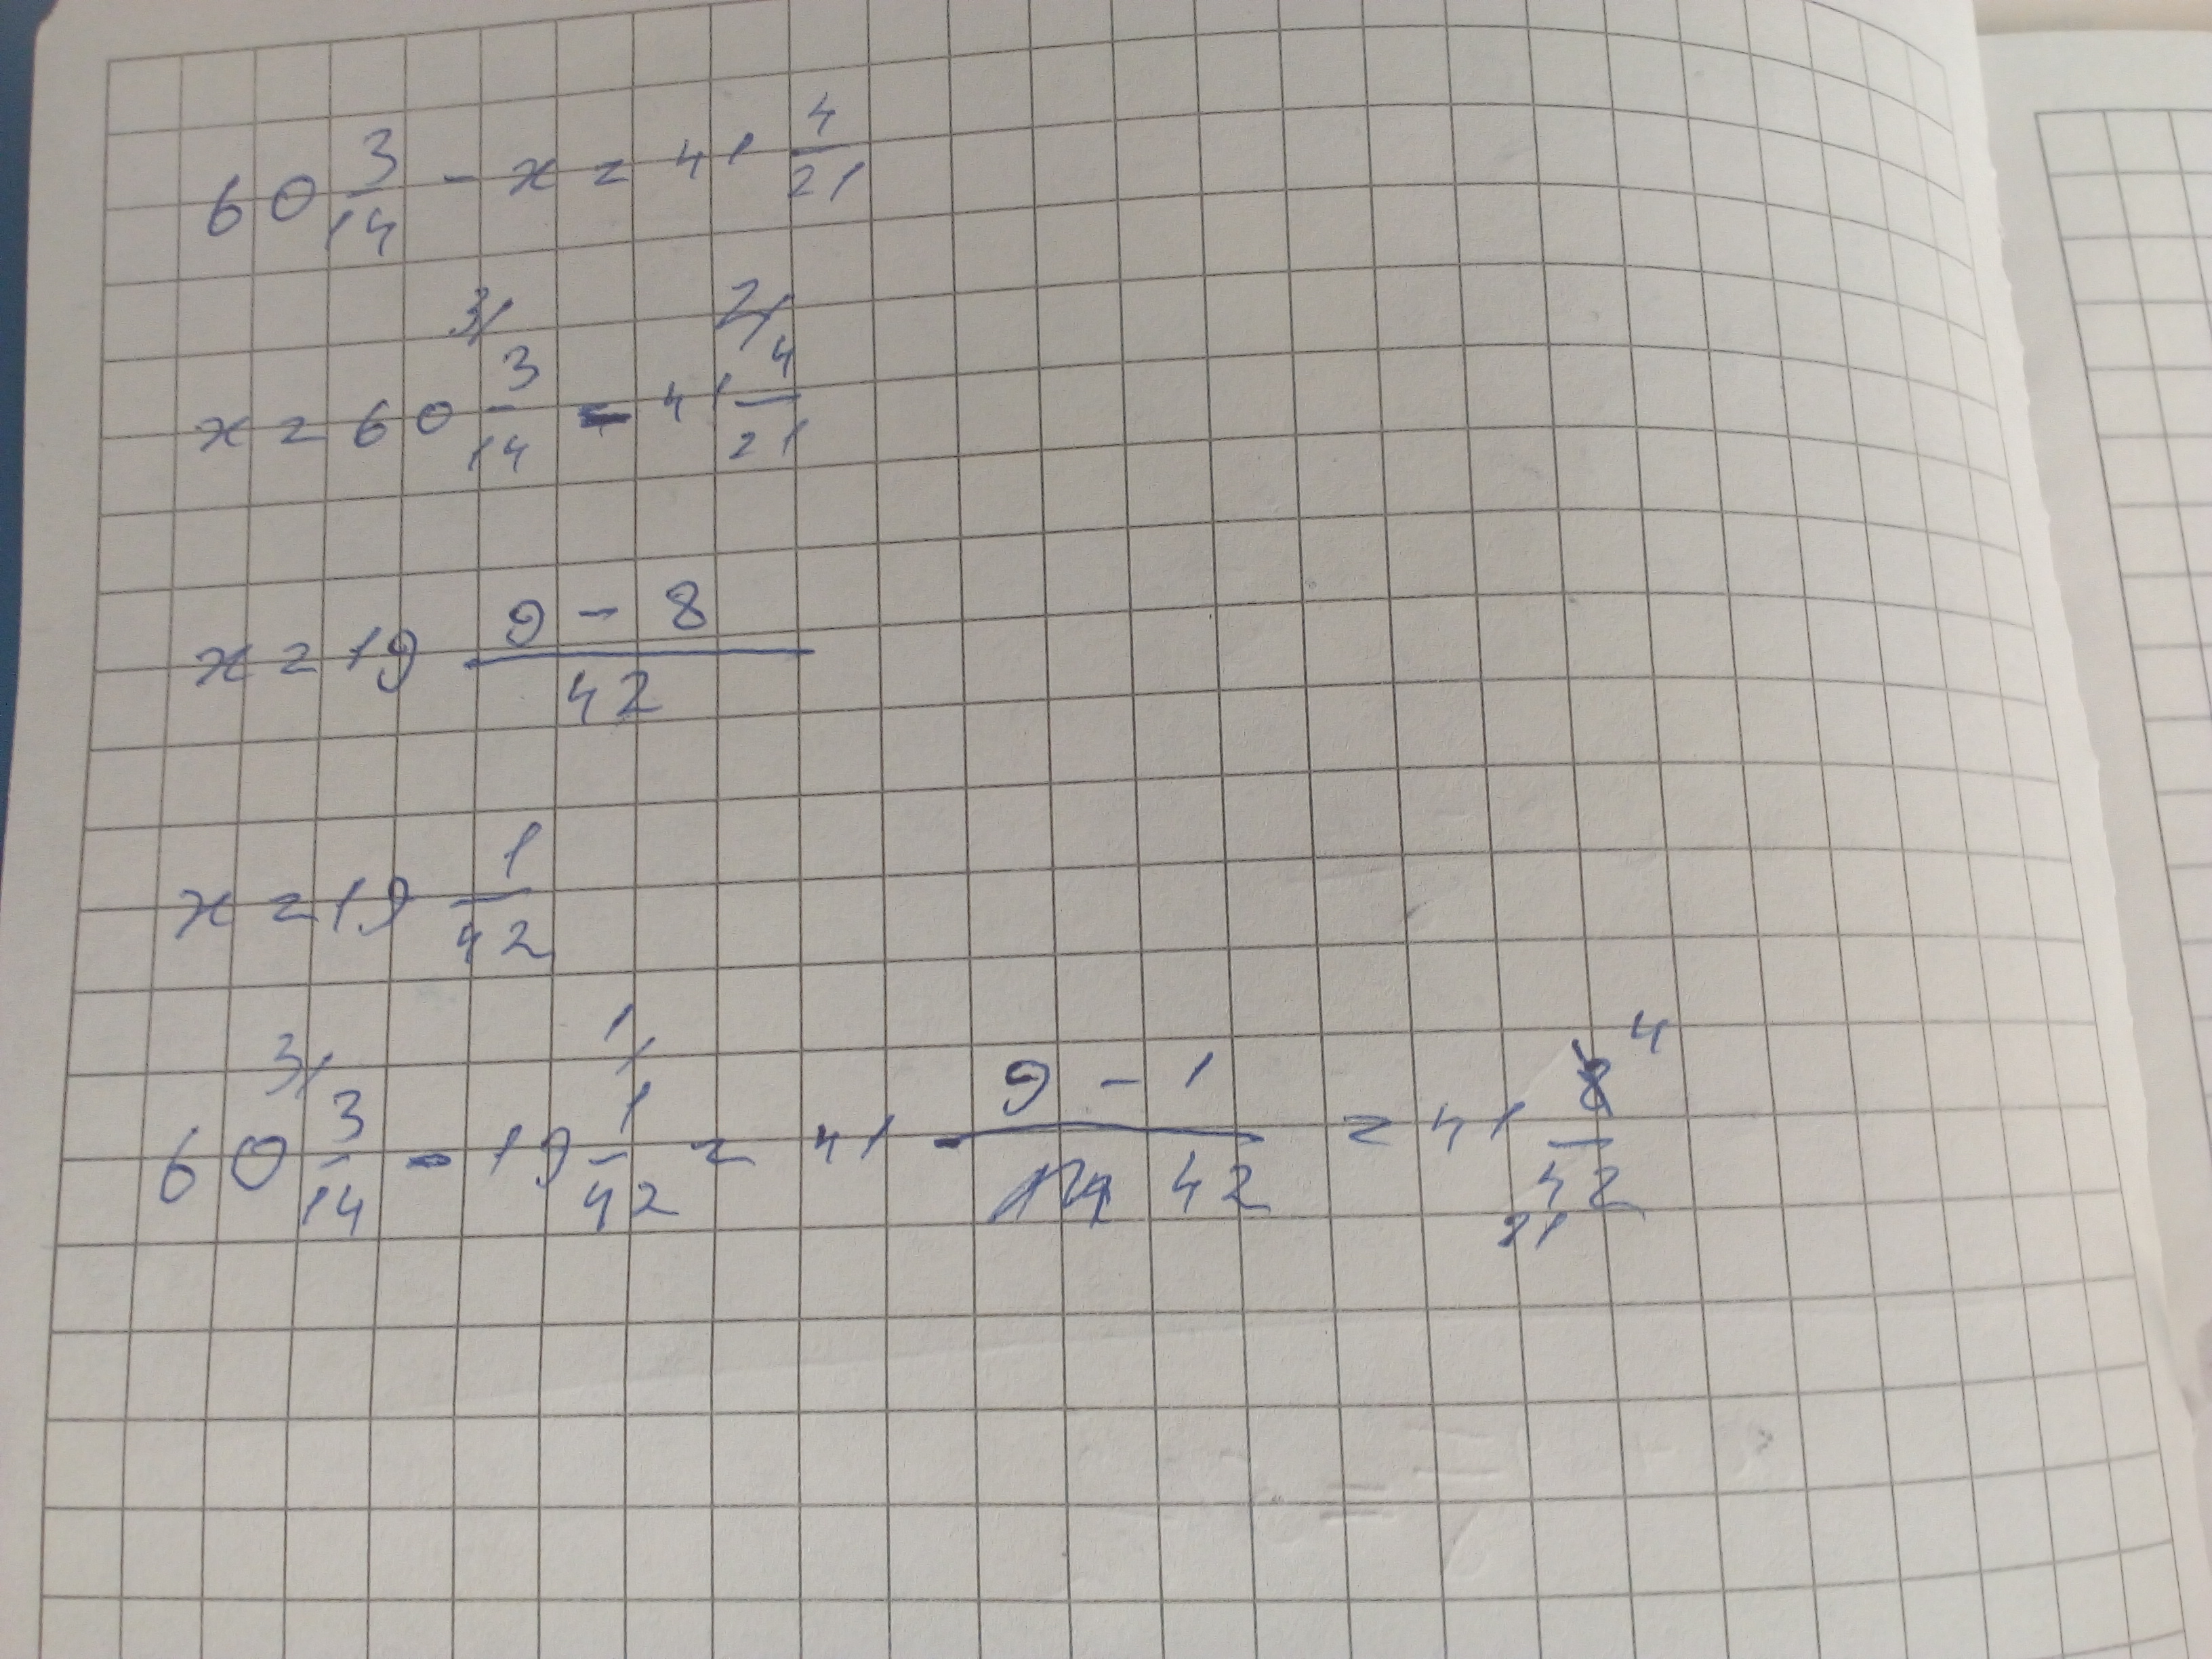 60 3/14 - x = 41 4/21
x = 60 3/14 - 41 4/21
x = 19 (9 - 8)/42
x = 19 1/42
60 3/14 - 19 1/42 = 41 (9 - 1)/42 = 41 8/42 4 21